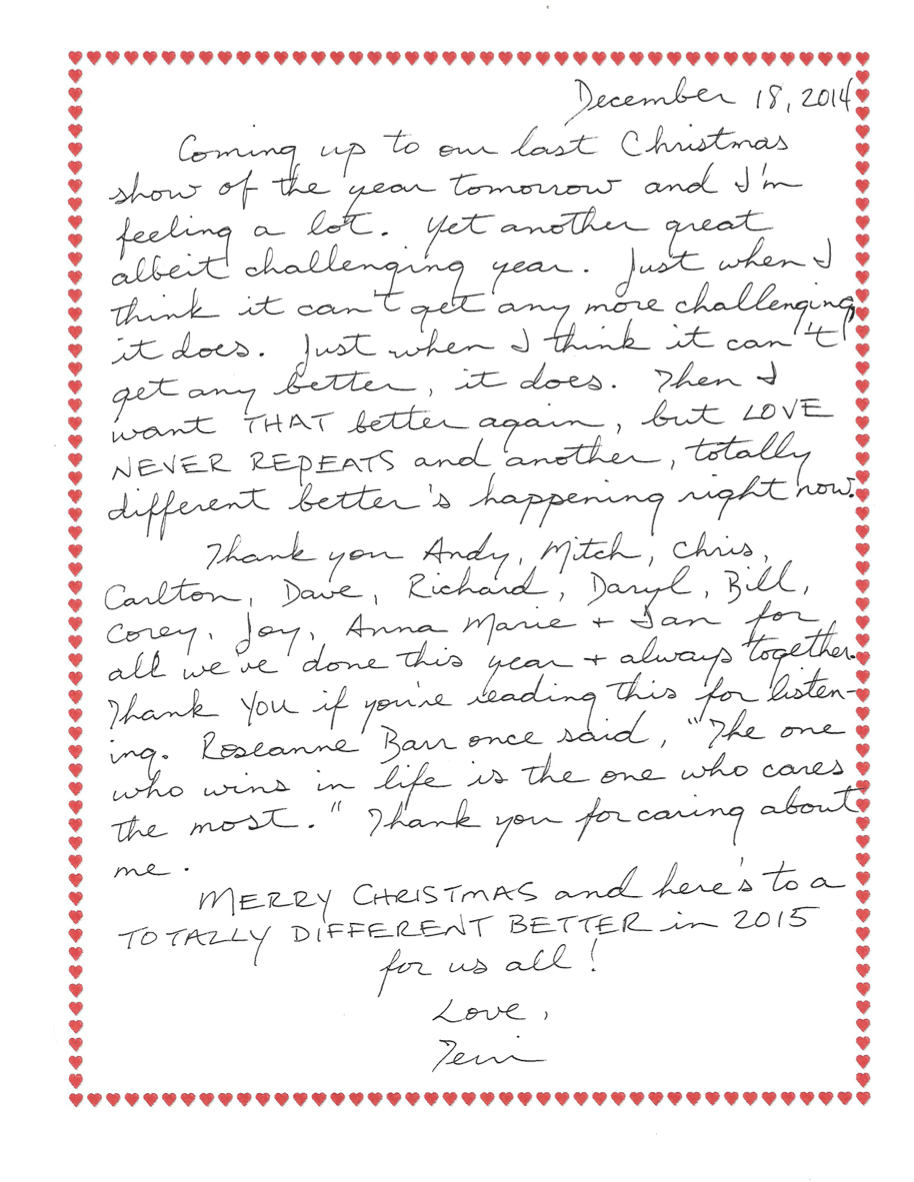 December 18, 2014
Coming up to our last Christmas
show of the year tomorrow and I'm
feeling a lot. Yet another great
albeit challenging year. Just when I
think it can't get any more challenging,
it does. Just when I think it can't
get any better, it does. Then I
want THAT better again, but LOVE
NEVER REPEATS and another, totally
different better's happening right now.
Thank you Andy, Mitch, Chris,
Carlton, Dave, Richard, Daryl, Bill,
Corey, Joy, Anna Marie + Jan for
all we've done this year + always together.
Thank YOU if you're reading this for listen-
ing. Roseanne Barr once said, "The one
who wins in life is the one who cares
the most." Thank you for caring about
me.
MERRY CHRISTMAS and here's to a
TOTALLY DIFFERENT BETTER in 2015
for us all!
Love,
Terri